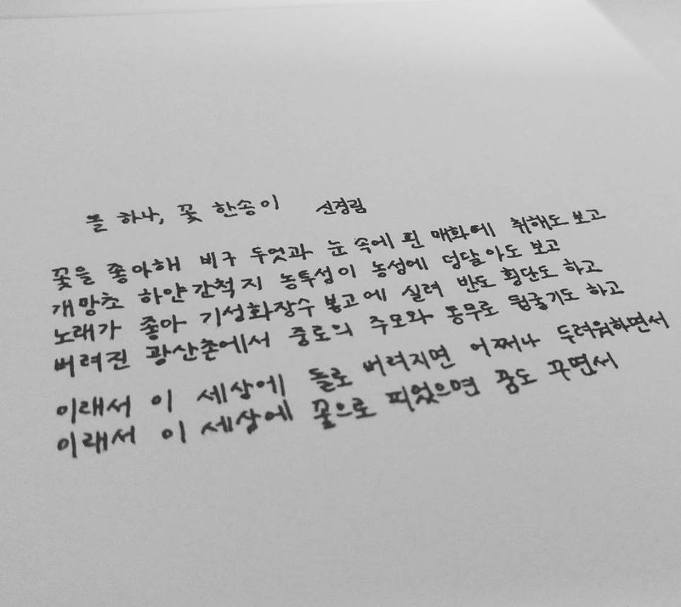 돌 하나, 꽃 한송이 신경림
꽃을 좋아해 비구 두엇과 눈 속에 핀 매화에 취해도 보고
개망초 하얀 간척지 농투성이 농성에 덩달아도 보고
노래가 좋아 기성화장수 봉고에 실려 반도 횡단도 하고
버려진 광산촌에서 중로의 주모와 동무로 뒹굴기도 하고
이래서 이 세상에 돌로 버려지면 어쩌나 두려워하면서
이래서 이 세상에 꽃으로 피었으면 꿈도 꾸면서